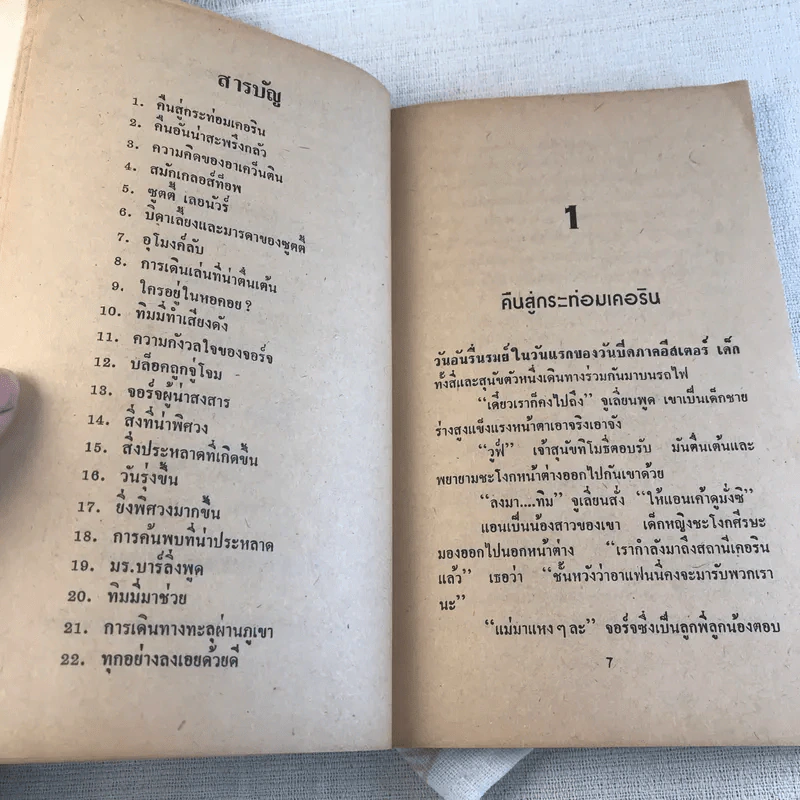 สารบัญ
1. คืนสู่กระท่อมเคอริน
2. คืนอันน่าสะพรึงกลัว
3. ความคิดของอาเคว็นติน
4. สมักเกลอส์ท็อพ
5. ซูตตี้ เลอนัวร์
6. บิดาเลี้ยงและมารดาของซูตตี้
7. อุโมงค์ลับ
8. การเดินเล่นที่น่าตื่นเต้น
9. ใครอยู่ในหอคอย?
10. ทิมมี่ทำเสียงดัง
11. ความกังวลใจของจอร์จ
12. บล็อคถูกจู่โจม
13. จอร์จผู้น่าสงสาร
14. สิ่งที่น่าพิศวง
15. สิ่งประหลาดที่เกิดขึ้น
16. วันรุ่งขึ้น
17. ยิ่งพิศวงมากขึ้น
18. การค้นพบที่น่าประหลาด
19. มร.บาร์ลิ่งพูด
20. ทิมมี่มาช่วย
21. การเดินทางทะลุผ่านภูเขา
22. ทุกอย่างลงเอยด้วยดี
1
คืนสู่กระท่อมเคอริน
วันอันรื่นรมย์ ในวันแรกของวันปิดภาคอีสเตอร์ เด็ก
ทั้งสี่และสุนัขตัวหนึ่งเดินทางร่วมกันมาบนรถไฟ
“เดี๋ยวเราก็คงไปถึง” จูเลี่ยนพูด เขาเป็นเด็กชาย
ร่างสูงแข็งแรงหน้าตาเอาจริงเอาจัง
“วูฟ” เจ้าสุนัขทิโมธี่ตอบรับ มันตื่นเต้นและ
พยายามชะโงกหน้าต่างออกไปกับเขาด้วย
“ลงมา....ทิม” จูเลี่ยนสั่ง “ให้แอนเค้าดูมั่งซิ”
แอนเป็นน้องสาวของเขา เด็กหญิงชะโงกศีรษะ
มองออกไปนอกหน้าต่าง “เรากำลังมาถึงสถานีเคอริน
แล้ว” เธอว่า “ชั้นหวังว่าอาแฟนนี่คงจะมารับพวกเรา
นะ”
“แม่มาแหง ๆ ละ” จอร์จซึ่งเป็นลูกพี่ลูกน้องตอบ
7